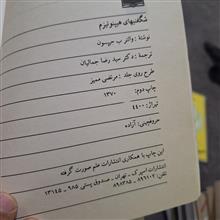 شگفتیهای هیپنوتیزم
نوشتهٔ : والتر ب جیبسون
ترجمهٔ : دکتر سید رضا جمالیان
طرح روی جلد : مرتضی ممیز
چاپ دوم : ۱۳۷۰
تیراژ : ۴۴۰۰
حروفچینی: آزاده
این چاپ با همکاری انتشارات علم صورت گرفته
انتشارات اسپرک ـ تهران ـ صندوق پستی ۹۸۵ ـ ۱۳۱۴۵
تلفن: